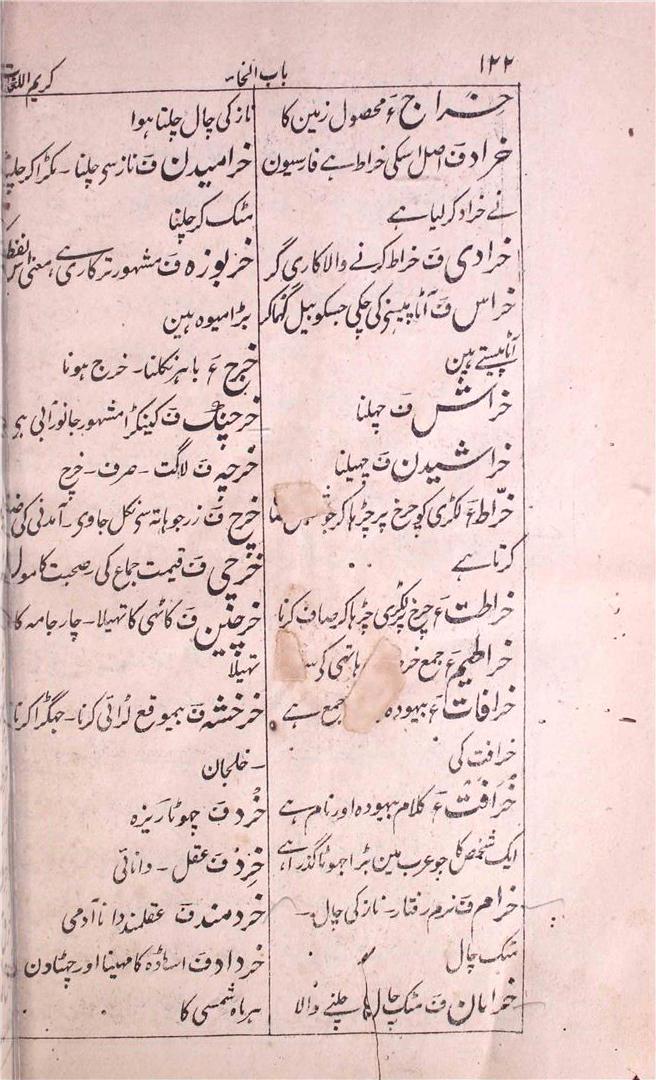 ۱۲۲
باب الخاء
کریم اللغات
خراج ع محصول زمین کا
خراد ف اصل اسکی خراط ہے فارسیون
نے خراد کر لیا ہے
خرادی ف خراط کرنے والا کاری گر
خراس ف آٹا پیسنے کی چکی جسکو بیل گھماکر
آٹا پیستے ہین
خراش ف چھلنا
خراشیدن ف چھیلنا
خرّاط ع لکڑی کو چرخ پر چڑہا کر
کرتا ہے
خراطت ع چرخ پر لکڑی چڑہا کر صاف کرنا
خراطیم ع جمع ہاتھی کی
خرافات ع بیہودہ جمع ہے
خرافت کی
خُرَافَت ع کلام بیہودہ اور نام ہے
ایک شخص کا جو عرب مین بڑا جھوٹا گذرا ہے
خرام ف نرم رفتار۔ ناز کی چال۔
مٹک چال
خرامان ف مٹک چال چلنے والا
ناز کی چال چلتا ہوا
خرامیدن ف ناز سی چلنا۔ مکڑا کر چلنا
مٹک کر چلنا
خربوزہ ف مشہور ترکاری ہے معنی اس لفظ
بڑا میوہ ہین
خرج ع باہر نکلنا۔ خرچ ہونا
خرچنگ ف کینکڑا مشہور جانور آبی ہی
خرچہ ف لاگت۔ صرف۔ خرچ
خرچ ف زر جو ہاتہ سی نکل جاوی۔ آمدنی کی ضد
خرچی ف قیمت جماع کی۔ صحبت کا مول
خرجین ف کاٹہی کا تہیلا۔ چار جامہ کا
تہیلا
خرخشہ ف بیموقع لڑائی کرنا۔ جہگڑا کرنا
۔ خلجان
خُرد ف چھوٹا ریزہ
خِرَد ف عقل۔ دانائی
خردمند ف عقلمند دانا آدمی
خرداد ف اساڈہ کا مہینا اور چہٹا دن
ہر ماہ شمسی کا